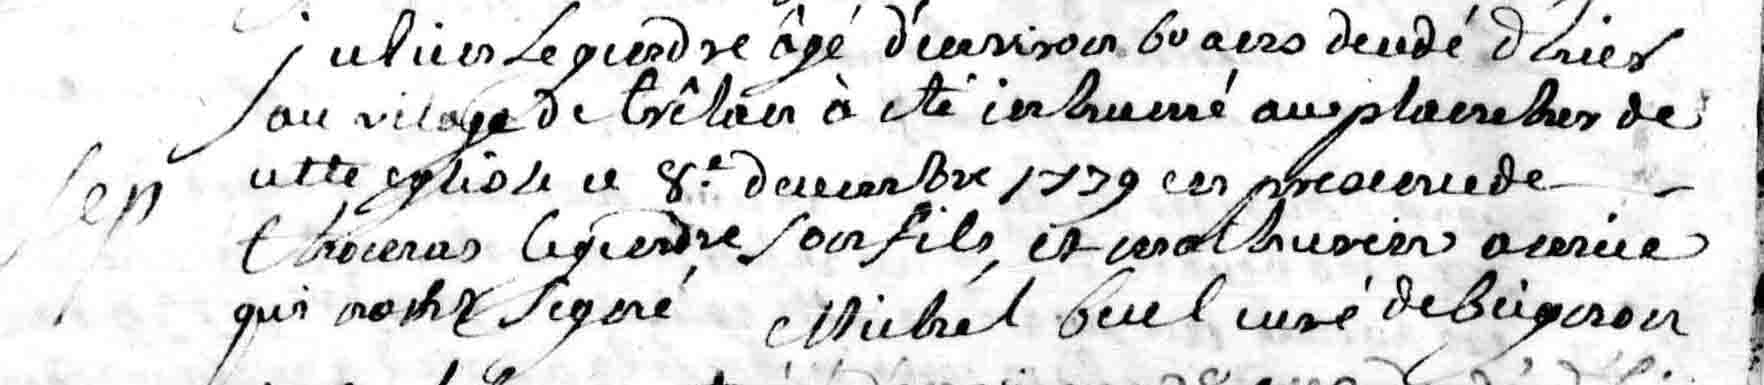 julien Legendre âgé d'environ 60 ans decedé d'hier
au vilage de trêlan à eté inhumé au plancher de
cette eglise ce 8.e decembre 1739 en presence de
Sep
thomas legendre son fils, et mathurin
qui nont signé Michel buel curé de beignon